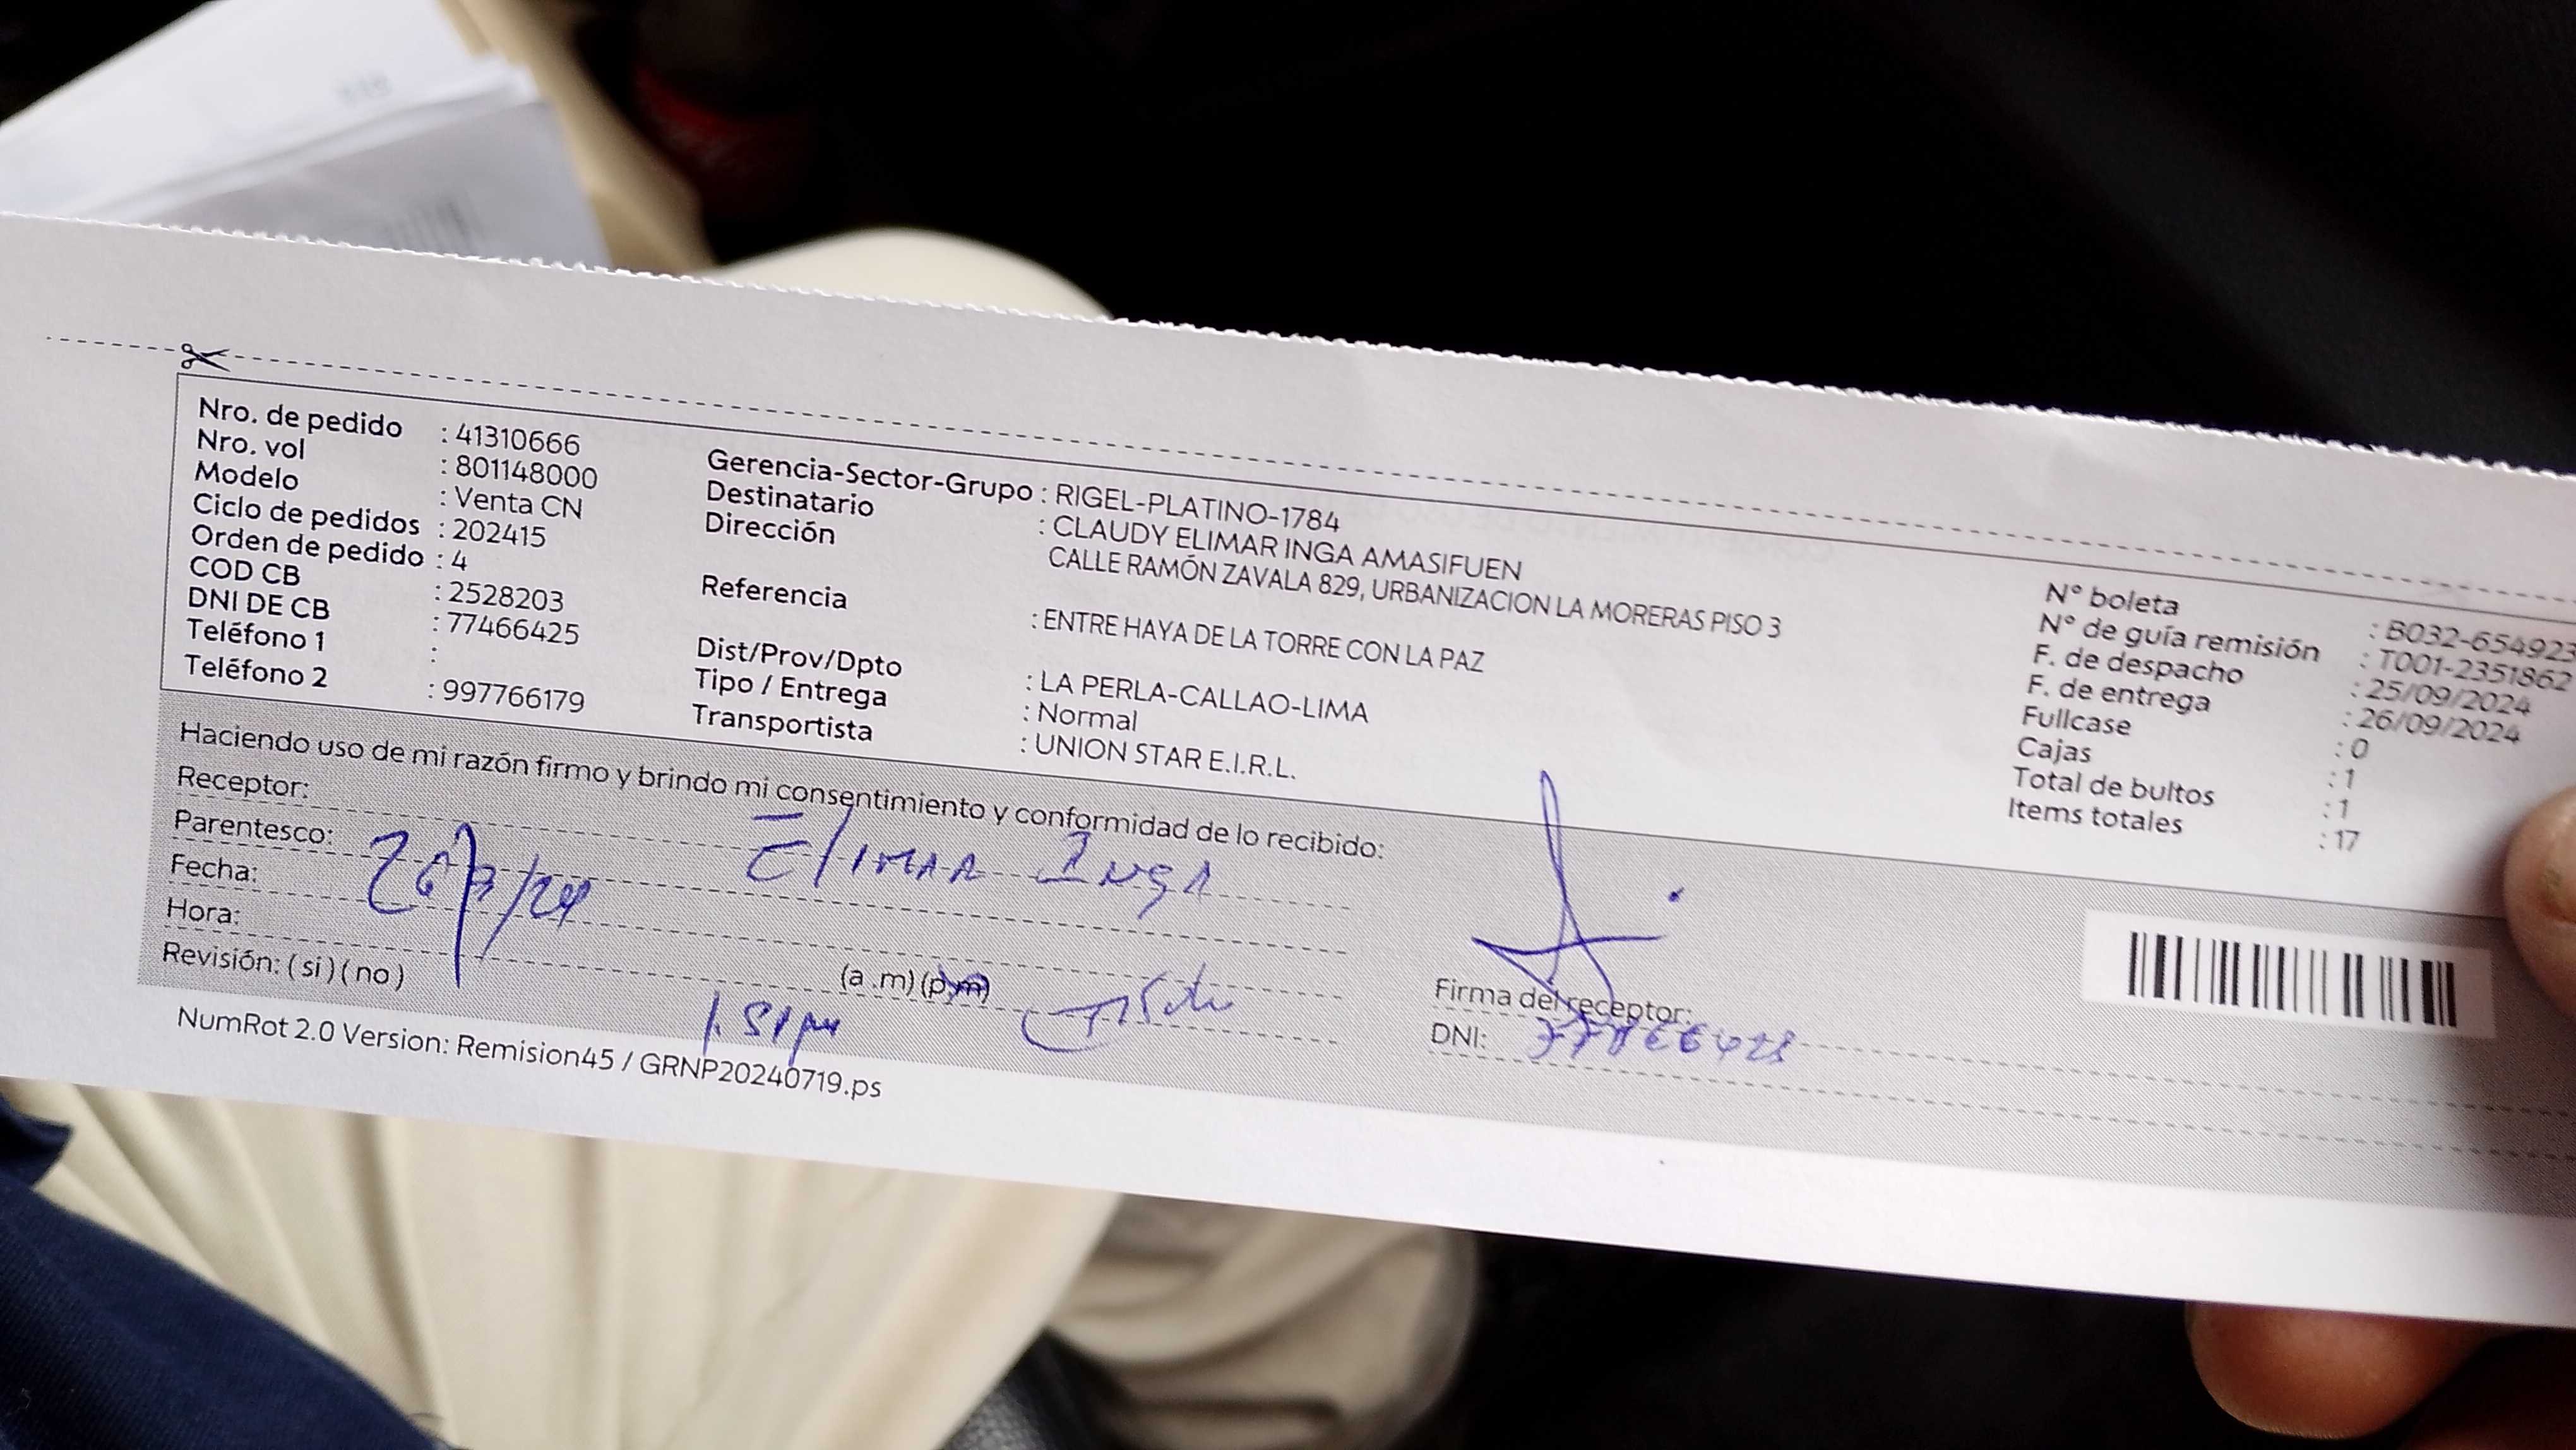 Nro. de pedido : 41310666
Nro. vol : 801148000
Modelo : Venta CN
Ciclo de pedidos : 202415
Orden de pedido : 4
COD CB : 2528203
DNI DE CB : 77466425
Teléfono 1 :
Teléfono 2 : 997766179
Gerencia-Sector-Grupo : RIGEL-PLATINO-1784
Destinatario : CLAUDY ELIMAR INGA AMASIFUEN
Dirección CALLE RAMÓN ZAVALA 829, URBANIZACION LA MORERAS PISO 3
Referencia : ENTRE HAYA DE LA TORRE CON LA PAZ
Dist/Prov/Dpto : LA PERLA-CALLAO-LIMA
Tipo / Entrega : Normal
Transportista : UNION STAR E.I.R.L.
N° boleta : B032-654923
N° de guía remisión : T001-2351862
F. de despacho : 25/09/2024
F. de entrega : 26/09/2024
Fullcase : 0
Cajas : 1
Total de bultos : 1
Items totales : 17
Haciendo uso de mi razón firmo y brindo mi consentimiento y conformidad de lo recibido:
Receptor: Elimar Inga
Parentesco:
Fecha:
Hora: (a .m) (p.m)
1.51 pm
Revisión: ( si ) ( no )
Firma del receptor:
DNI:
NumRot 2.0 Version: Remision45 / GRNP20240719.ps